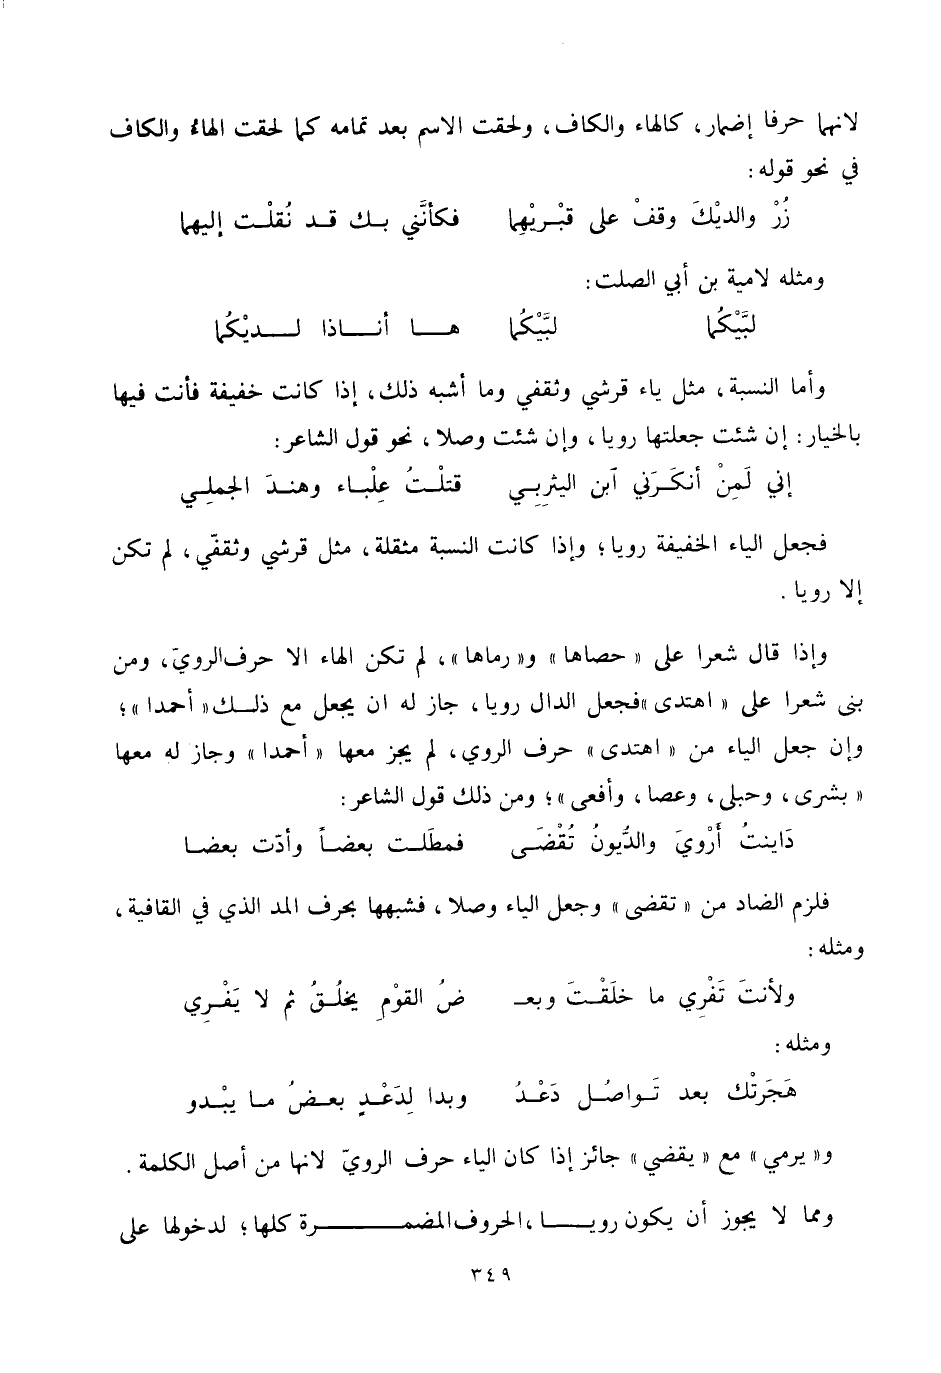 لانها حرفا إضمار، كالهاء والكاف، ولحقت الاسم بعد تمامه كما لحقت الهاء والكاف
في نحو قوله:
زُرْ والديْكَ وقفْ على قبْريْهِما فكأنَّني بـك قـد نُقلْـت إليها
ومثله لامية بن أبي الصلت:
لبَّيْكُما لبَّيْكُما هـا أنـاذا لـديْكُما
وأما النسبة، مثل ياء قرشي وثقفي وما أشبه ذلك، إذا كانت خفيفة فأنت فيها
بالخيار: إن شئت جعلتها رويا، وإن شئت وصلا، نحو قول الشاعر:
إني لَمِنْ أنكَرَني آبن اليثربِـي قتلْـتُ عِلْباء وهنـدَ الجملِـي
فجعل الياء الخفيفة رويا؛ وإذا كانت النسبة مثقلة، مثل قرشي وثقفّي، لم تكن
إلا رويا.
وإذا قال شعرا على « حصاها » و« رماها »، لم تكن الهاء الا حرف الرويّ، ومن
بنى شعرا على « اهتدى » فجعل الدال رويا، جاز له ان يجعل مع ذلـك « أحمدا »؛
وإن جعل الياء من « اهتدى » حرف الروي، لم يجز معها « أحمدا » وجاز له معها
« بشرى، وحبلى، وعصا، وأفعى »؛ ومن ذلك قول الشاعر:
دَاينتُ أَرْويَ والدُّيونُ تُقْضَـى فمطَلـت بعضـاً وأدّت بعضـا
فلزم الضاد من « تقضى » وجعل الياء وصلا، فشبهها بحرف المد الذي في القافية،
ومثله:
ولأنتَ تَفْرِي ما خلَقْـتَ وبعـ ضُ القوْمِ يخلُـقُ ثم لا يَفْـرِي
ومثله:
هَجَرَتْك بعد تَـواصُـل دَعْـدُ وبدا لِدَعْـدٍ بعـضُ مـا يبْـدو
و« يرمي » مع « يقضي » جائز إذا كان الياء حرف الرويّ لانها من أصل الكلمة.
ومما لا يجوز أن يكون رويـا، الحروف المضمـرة كلها؛ لدخولها على
٣٤٩